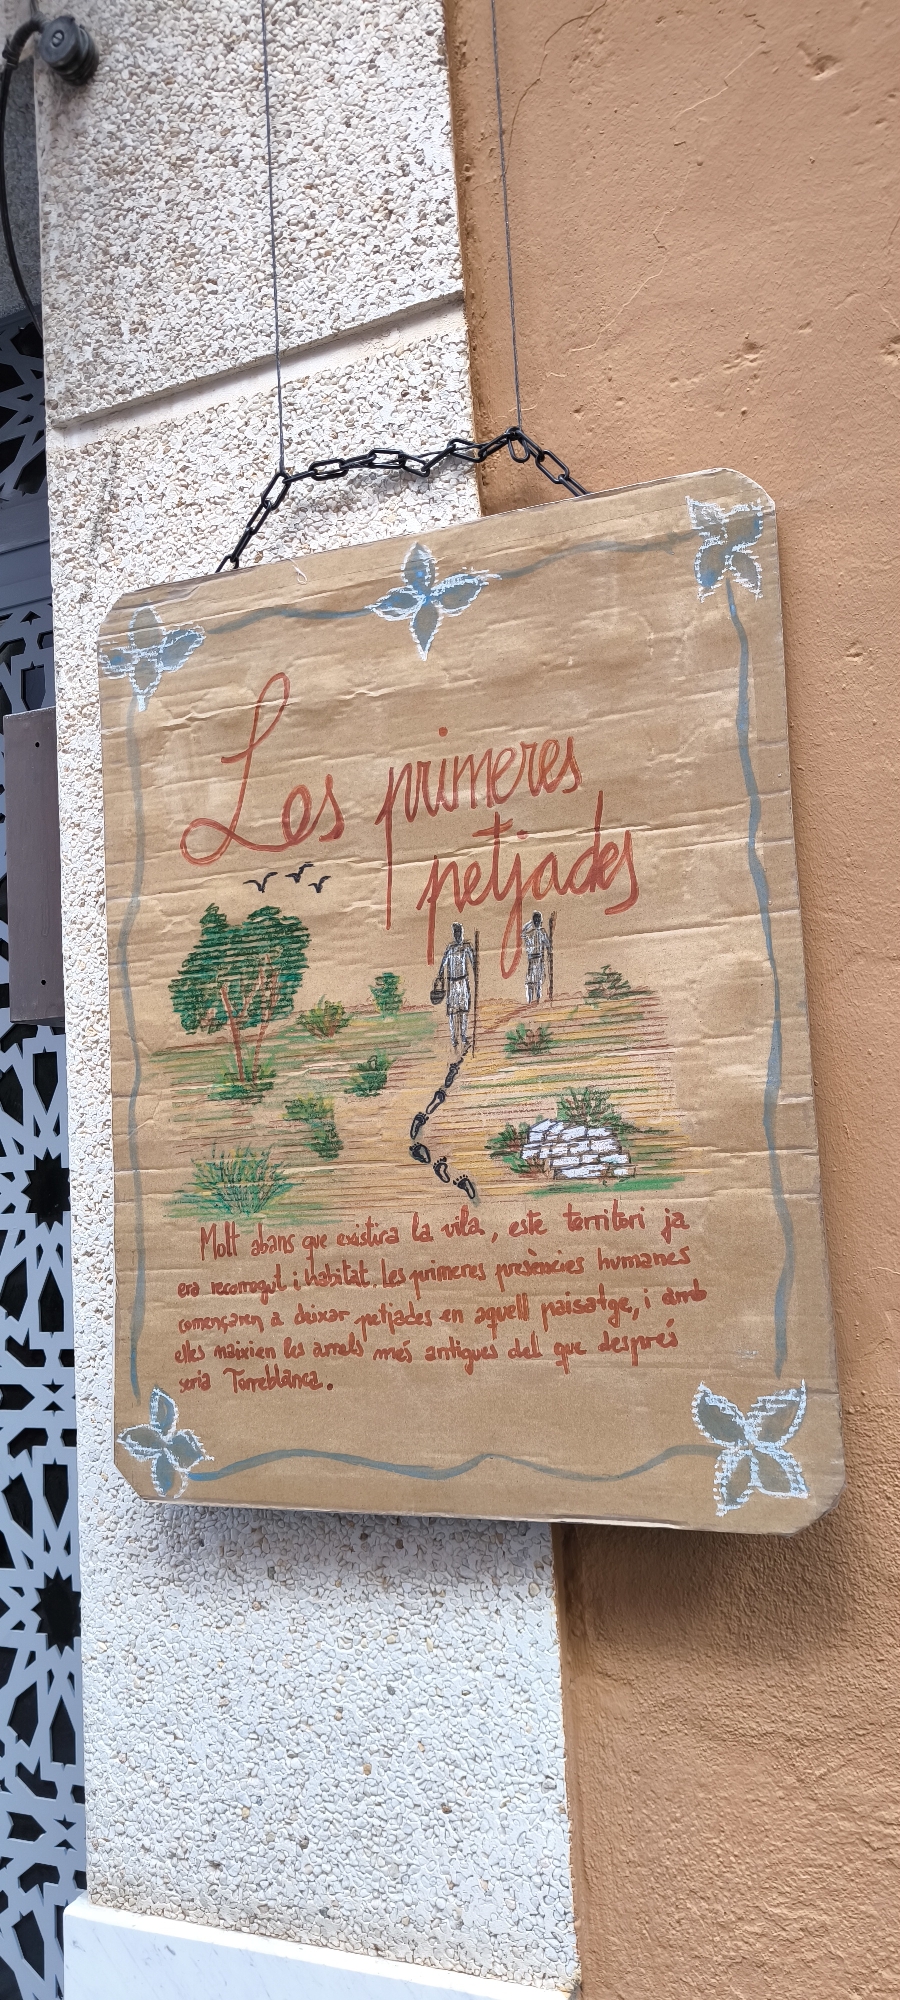 Les primeres
petjades
Molt abans que existira la vila, este territori ja
era recorregut i habitat. Les primeres presències humanes
començaren a deixar petjades en aquell paisatge, i amb
elles naixien les arrels més antigues del que després
seria Torreblanca.